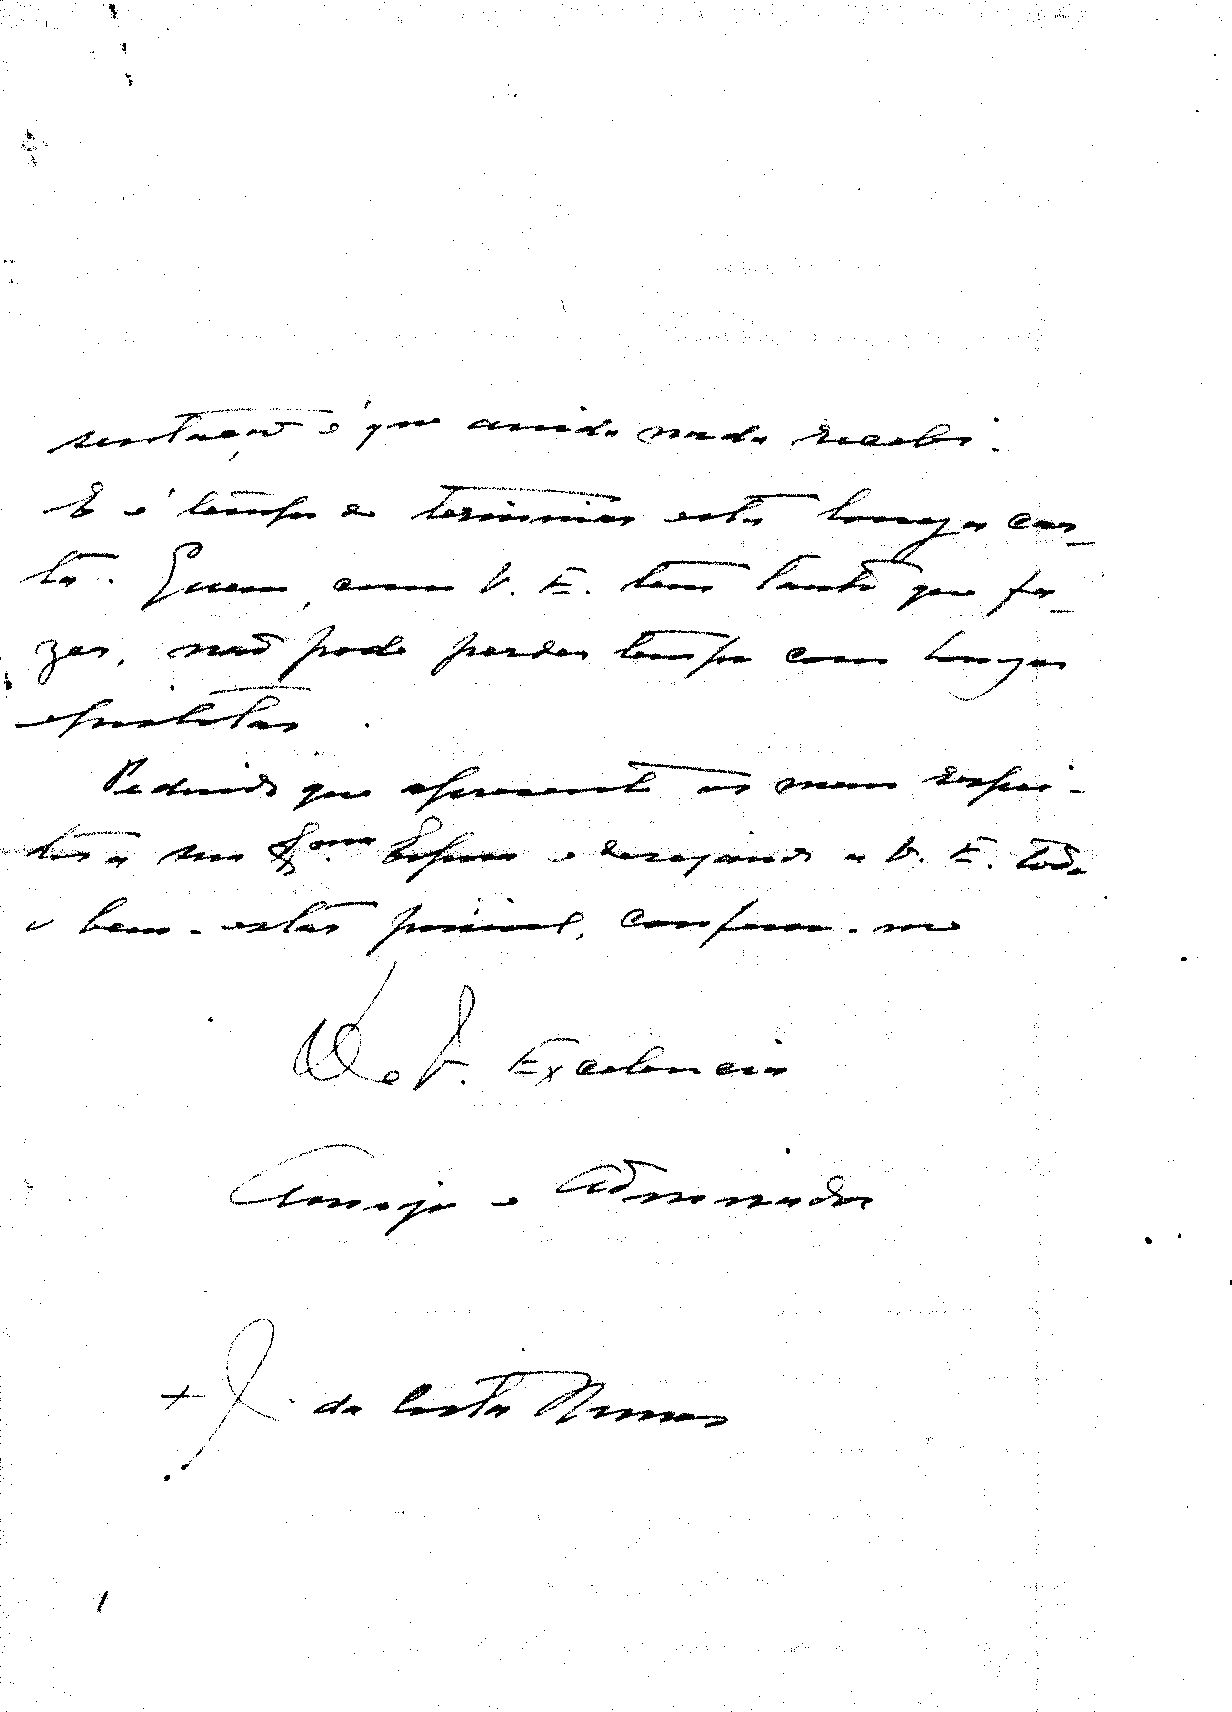 sentação é que ainda nada recebi.
E é tempo de terminar esta longa car-
ta. Quem, como V. E. tem tanto que fa-
zer, não pode perder tempo com longas
epistolas.
Pedindo que apresente os meus respei-
tos a sua Exma Esposa e desejando a V. E. todo
o bem-estar possivel, confesso-me
De V. Excelencia
Amigo e Admirador
+ J. da Costa Nunes